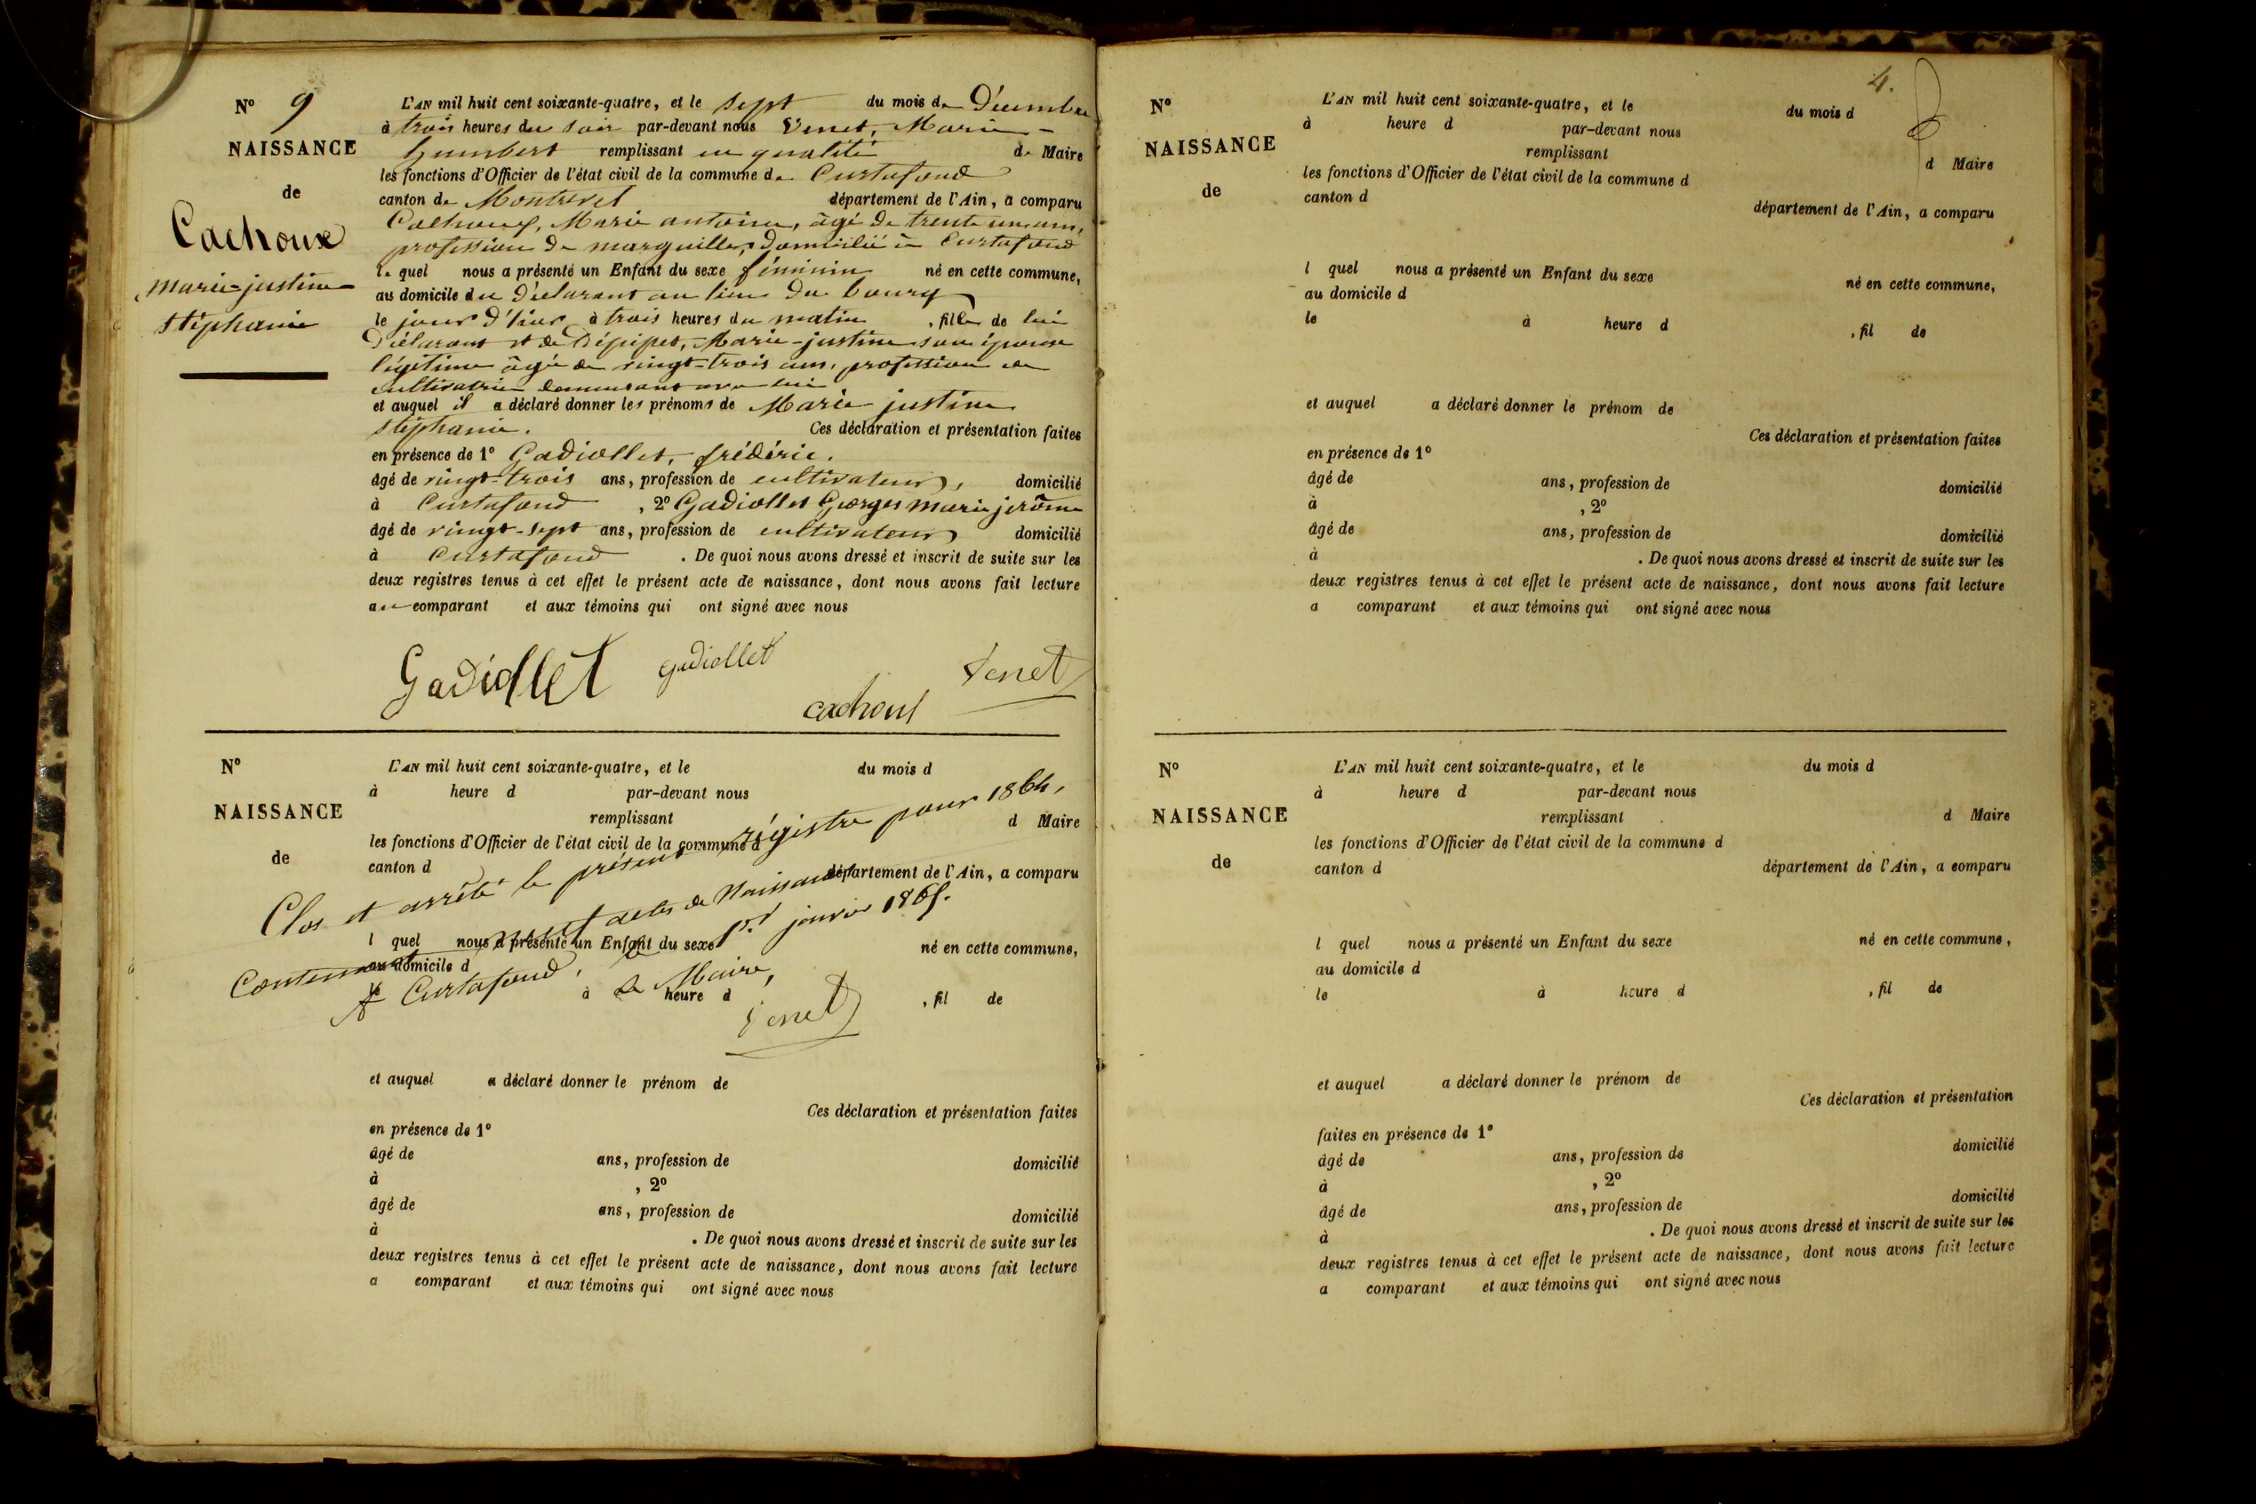 N° 9
NAISSANCE
de
Cachoux
marie-justine
stéphanie
L'AN mil huit cent soixante-quatre, et le sept du mois de Décembre
à trois heures du soir par-devant nous Venet, Marie-
humbert remplissant en qualité de Maire
les fonctions d'Officier de l'état civil de la commune de Curtafond
canton de Montrevel département de l'Ain, a comparu
Cachoux, Marie antoine, âgé de trente un ans,
profession de marguiller, domicilié à Curtafond
le quel nous a présenté un Enfant du sexe féminin né en cette commune,
au domicile du Déclarant au lieu du bourg
le jour d'hier à trois heures du matin , fille de lui
Déclarant et de Dépipet, Marie-justine son épouse
légitime âgée de vingt-trois ans, profession de
cultivatrice demeurant avec lui
et auquel il a déclaré donner les prénoms de Marie justine
stéphanie. Ces déclaration et présentation faites
en présence de 1° Gadiollet, frédéric.
âgé de vingt-trois ans, profession de cultivateur, domicilié
à Curtafond , 2° Gadiollet Georges marie jerôme
âgé de vingt-sept ans, profession de cultivateur domicilié
à Curtafond . De quoi nous avons dressé et inscrit de suite sur les
deux registres tenus à cet effet le présent acte de naissance, dont nous avons fait lecture
au comparant et aux témoins qui ont signé avec nous
Gadiollet gadiollet Venet
cachoux
N°
NAISSANCE
de
L'AN mil huit cent soixante-quatre, et le du mois d
à heure d par-devant nous
remplissant d Maire
les fonctions d'Officier de l'état civil de la commune d
canton d département de l'Ain, a comparu
Clos et arrêté le présent régistre pour 1864,
Contenant neuf actes de Naissances
A Curtafond, le 1er janvier 1865.
Le Maire,
Venet
l quel nous a présenté un Enfant du sexe né en cette commune,
au domicile d
le à heure d , fil de
et auquel a déclaré donner le prénom de
Ces déclaration et présentation faites
en présence de 1°
âgé de ans, profession de domicilié
à , 2°
âgé de ans, profession de domicilié
à . De quoi nous avons dressé et inscrit de suite sur les
deux registres tenus à cet effet le présent acte de naissance, dont nous avons fait lecture
a comparant et aux témoins qui ont signé avec nous
4.
N°
NAISSANCE
de
L'AN mil huit cent soixante-quatre, et le du mois d
à heure d par-devant nous
remplissant d Maire
les fonctions d'Officier de l'état civil de la commune d
canton d département de l'Ain, a comparu
l quel nous a présenté un Enfant du sexe né en cette commune,
au domicile d
le à heure d , fil de
et auquel a déclaré donner le prénom de
Ces déclaration et présentation faites
en présence de 1°
âgé de ans, profession de domicilié
à , 2°
âgé de ans, profession de domicilié
à . De quoi nous avons dressé et inscrit de suite sur les
deux registres tenus à cet effet le présent acte de naissance, dont nous avons fait lecture
a comparant et aux témoins qui ont signé avec nous
N°
NAISSANCE
de
L'AN mil huit cent soixante-quatre, et le du mois d
à heure d par-devant nous
remplissant d Maire
les fonctions d'Officier de l'état civil de la commune d
canton d département de l'Ain, a comparu
l quel nous a présenté un Enfant du sexe né en cette commune,
au domicile d
le à heure d , fil de
et auquel a déclaré donner le prénom de
Ces déclaration et présentation
faites en présence de 1°
âgé de ans, profession de domicilié
à , 2°
âgé de ans, profession de domicilié
à . De quoi nous avons dressé et inscrit de suite sur les
deux registres tenus à cet effet le présent acte de naissance, dont nous avons fait lecture
a comparant et aux témoins qui ont signé avec nous